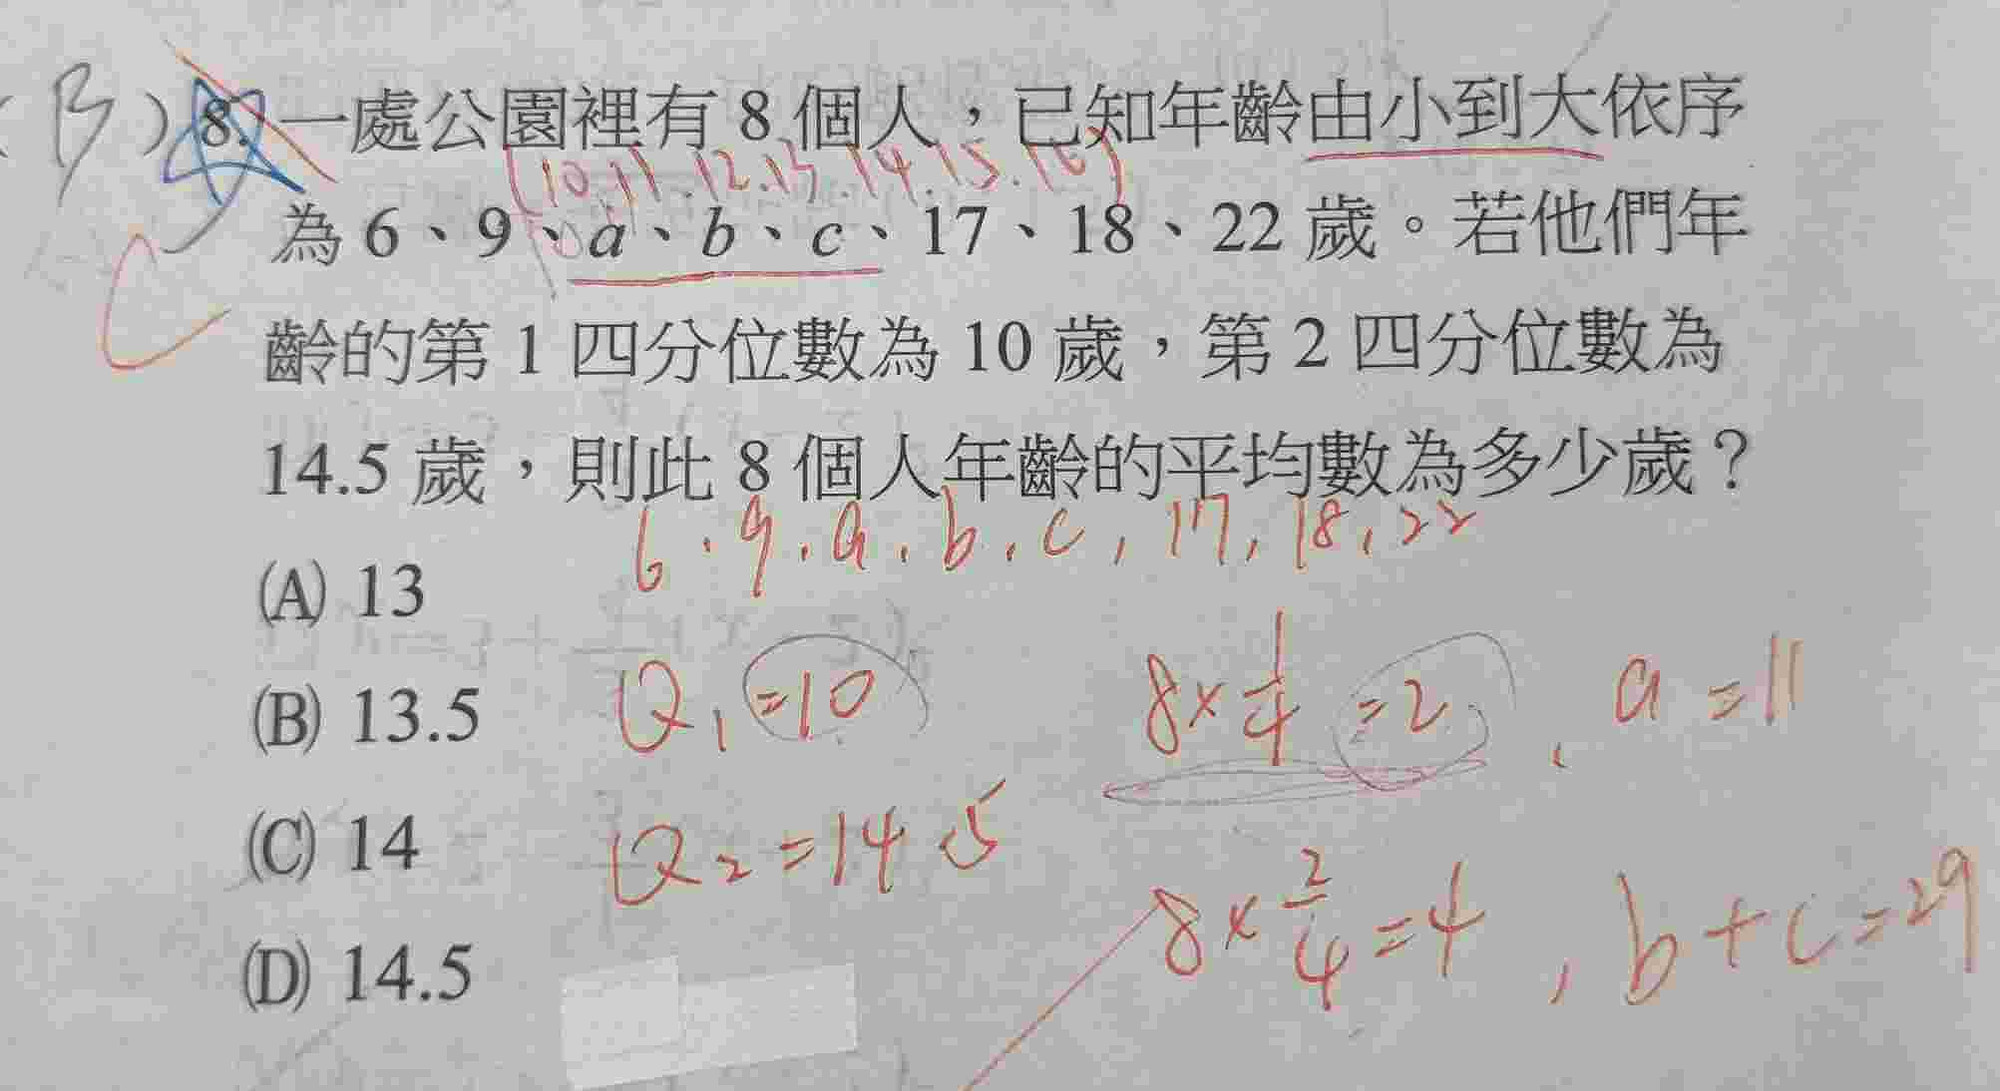 (B) 8. 一處公園裡有 8 個人，已知年齡由小到大依序
(10.11.12.13.14.15.16)
為 6、9、a、b、c、17、18、22 歲。若他們年
C
齡的第 1 四分位數為 10 歲，第 2 四分位數為
14.5 歲，則此 8 個人年齡的平均數為多少歲？
6.9.a.b.c,17,18,22
(A) 13
(B) 13.5 Q1=10 8×1/4=2, a=11
(C) 14 Q2=14.5
8×2/4=4, b+c=29
(D) 14.5